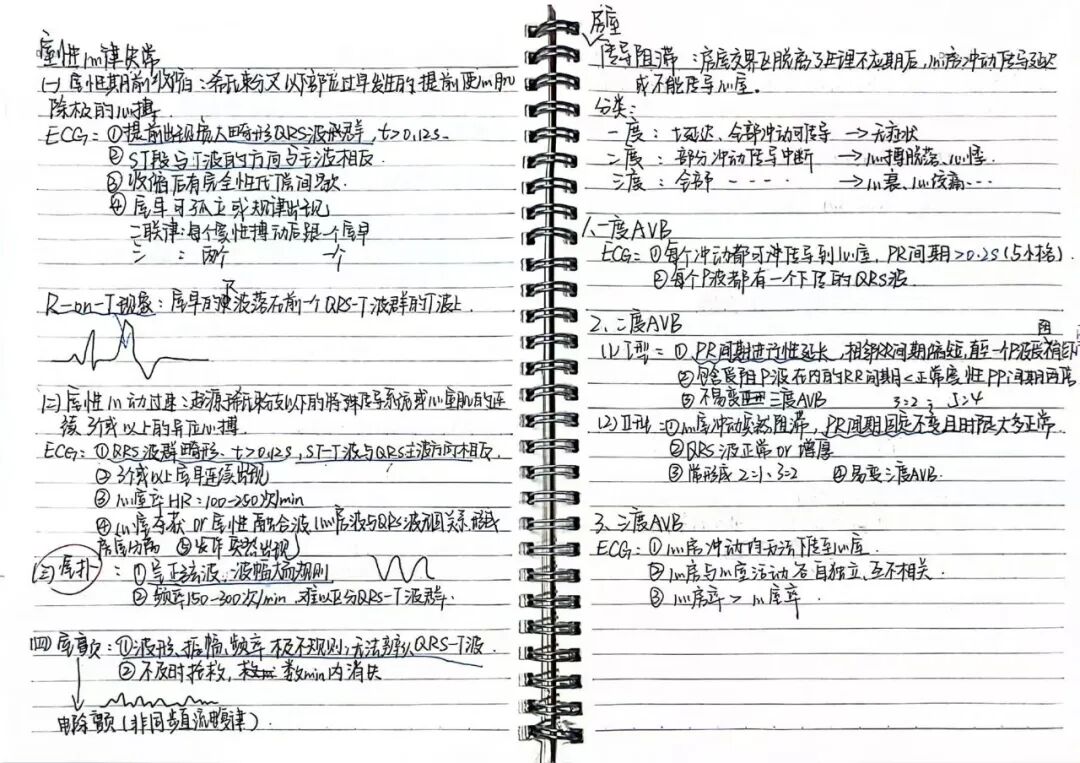 室性心律失常
(一) 室性期前收缩：希氏束分叉以下部位过早发生的，提前使心肌
除极的心搏.
ECG：①提前出现宽大畸形QRS波群，t>0.12s.
②ST段与T波的方向与主波相反
③收缩后有完全性代偿间歇.
④室早可孤立或规律出现
二联律：每个窦性搏动后跟一个室早
三 ：两个 一个
R-on-T现象：室早的R波落在前一个QRS-T波群的T波上.
(二) 室性心动过速：起源希氏束分支以下的特殊传导系统或心室肌的连
续3个或以上的异位心搏.
ECG：①QRS波群畸形. t>0.12s，ST-T波与QRS主波方向相反.
②3个或以上室早连续出现
③心室率HR：100-250次/min
④心室夺获 or 室性融合波（心房波与QRS波无关系.形成
房室分离 ⑤发作突然出现
(三) 室扑：①呈正弦波、波幅大而规则
②频率150-300次/min，难以区分QRS-T波群.
(四) 室颤：①波形、振幅、频率极不规则；无法辨认QRS-T波
②不及时抢救，数min内消失
电除颤(非同步直流电复律).
房室
传导阻滞：房室交界区脱离了生理不应期后，心房冲动传导延迟
或不能传导心室。
分类：
一度：t延迟、全部冲动可传导 → 无症状
二度：部分冲动传导中断 → 心搏脱落、心悸
三度：全部 - - - - → 心衰、心绞痛…
1、一度AVB
ECG：①每个冲动都可传导到心室，PR间期>0.2s(5小格).
②每个P波都有一个下传的QRS波
2、二度AVB
(1) I型：①PR间期进行性延长，相邻RR间期缩短，直至一个P波受阻不能
②包含受阻P波在内的RR间期<正常窦性PP间期两倍
③不易变三度AVB 3:2；5:4
(2) II型：①心房冲动突然阻滞，PR间期固定不变且时限大多正常.
②QRS波正常or增厚
③常形成2:1、3:2 ④易变三度AVB.
3、三度AVB
ECG：①心房冲动均无法下传至心室.
②心房与心室活动各自独立，互不相关.
③心房率>心室率.